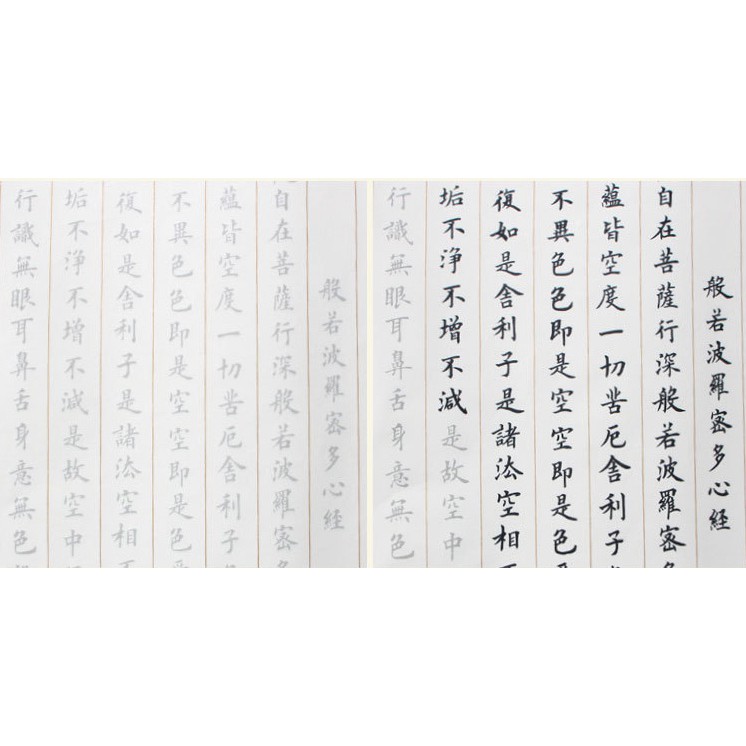 般若波羅密多心経
自在菩薩行深般若波羅密
蘊皆空度一切苦厄舍利子
不異色色即是空空即是色
復如是舍利子是諸法空相
垢不淨不增不減是故空中
行識無眼耳鼻舌身意無色
般若波羅密多心経
自在菩薩行深般若波羅密
蘊皆空度一切苦厄舍利子
不異色色即是空空即是色
復如是舍利子是諸法空相
垢不淨不增不減是故空中
行識無眼耳鼻舌身意無色